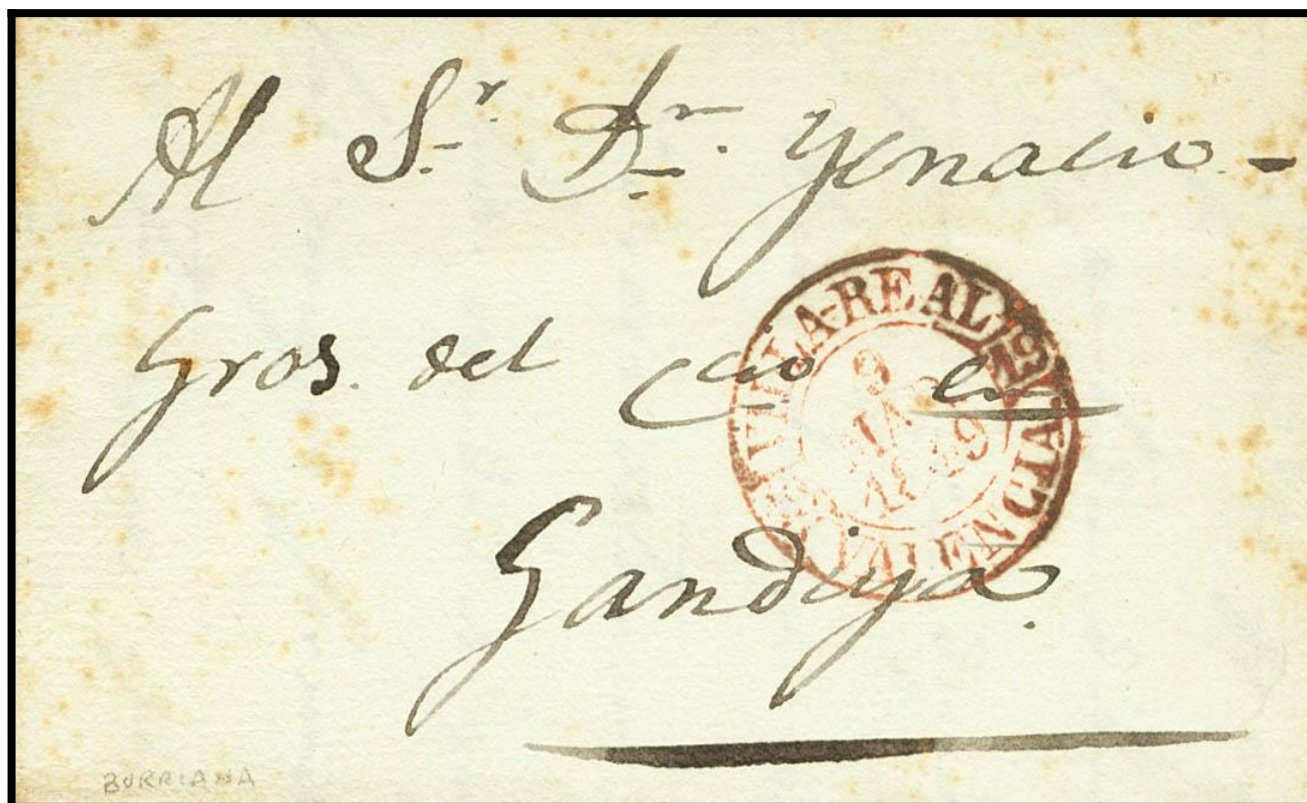 Al Sr. Dn. Ygnacio -
Gros. del Ccio en
Gandiya.
VILLA-REAL
VALENCIA.
BURRIANA